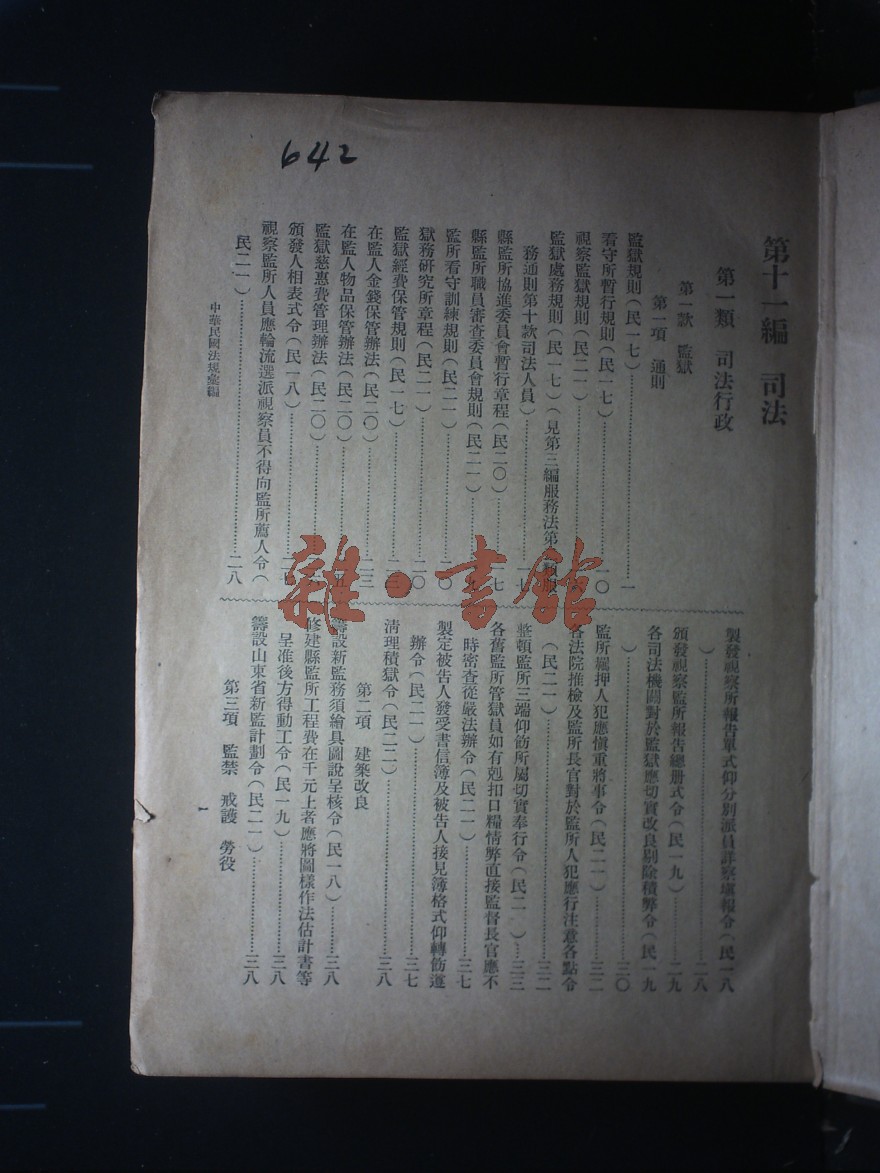 642
第十一編　司法
第一類　司法行政
第一款　監獄
第一項　通則
監獄規則（民一七）……一
看守所暫行規則（民一七）……一〇
視察監獄規則（民二一）
監獄處務規則（民一七）（見第三編服務法第
務通則第十款司法人員）……一七
縣監所協進委員會暫行章程（民二〇）……七
縣監所職員審查委員會規則（民二一）
監所看守訓練規則（民二一）……〇
獄務研究所章程（民二一）……二〇
監獄經費保管規則（民一七）
在監人金錢保管辦法（民二〇）……二三
在監人物品保管辦法（民二〇）
監獄慈惠費管理辦法（民二〇）
頒發人相表式令（民一八）……二七
視察監所人員應輪流選派視察員不得向監所薦人令（
民二一）……二八
中華民國法規彙編
製發視察所報告單式仰分別派員詳察塡報令（民一八
）……二八
頒發視察監所報告總册式令（民一九）……二九
各司法機關對於監獄應切實改良剔除積弊令（民一九
）……三〇
監所羈押人犯應愼重將事令（民二一）……三二
各法院推檢及監所長官對於監所人犯應行注意各點令
（民二一）……三二
整頓監所三端仰飭所屬切實奉行令（民二一）……三三
各舊監所管獄員如有剋扣口糧情弊直接監督長官應不
時密查從嚴法辦令（民二一）……三七
製定被告人發受書信簿及被告人接見簿格式仰轉飭遵
辦令（民二一）……三七
淸理積獄令（民二二）……三八
第二項　建築改良
籌設新監務須繪具圖說呈核令（民一八）……三八
修建縣監所工程費在千元上者應將圖樣作法估計書等
呈准後方得動工令（民一九）……三八
籌設山東省新監計劃令（民二一）……三八
第三項　監禁　戒護　勞役
一
雜·書館